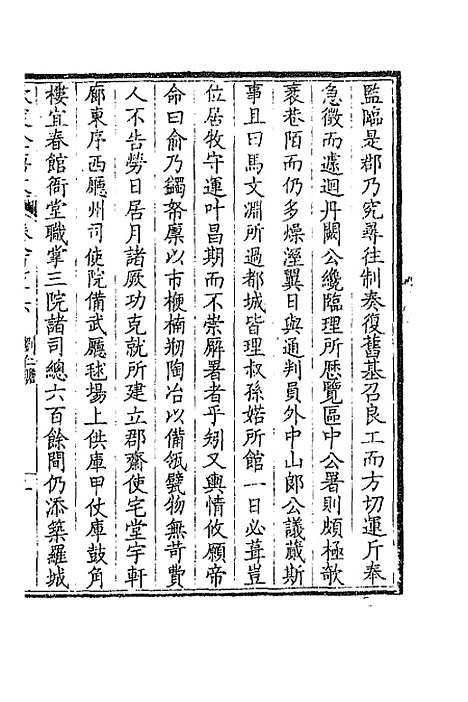 監臨是郡乃究尋往制奏復舊基召良工而方切運斤奉
急徴而遽迴丹闕公纔臨理所歷覽區中公署則頗極欹
衺巷陌而仍多燥溼翼日與通判員外中山郎公議蕆斯
事且曰馬文淵所過都城皆理叔孫婼所館一日必葺豈
位居牧守運叶昌期而不崇廨署者乎矧又輿情攸願帝
命曰俞乃蠲帑廩以市楩楠剏陶冶以備瓴甓物無苛費
人不告勞日居月諸厥功克就所建立郡齋使宅堂宇軒
廊東序西廳州司使院備武廳毬場上供庫甲仗庫鼓角
樓宜春館衙堂職掌三院諸司總六百餘間仍添築羅城
劉仁贍